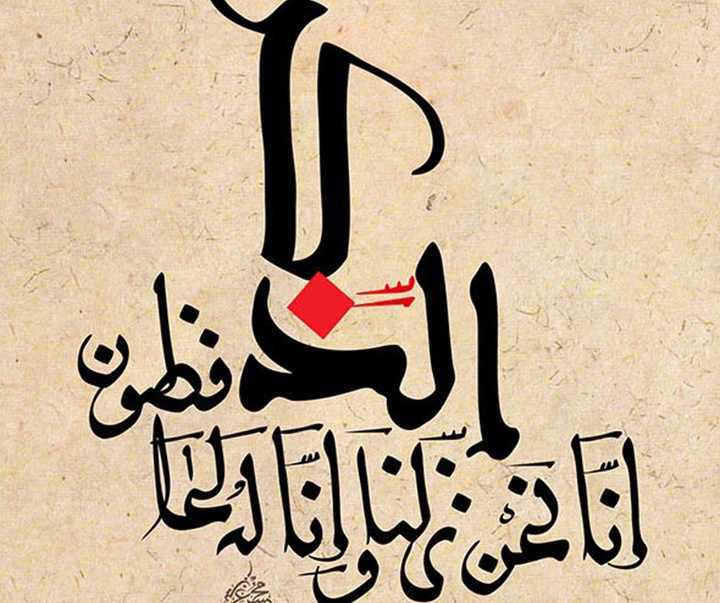 إنّا نحن نزّلنا
الذّكر
وإنّا له لحافظون